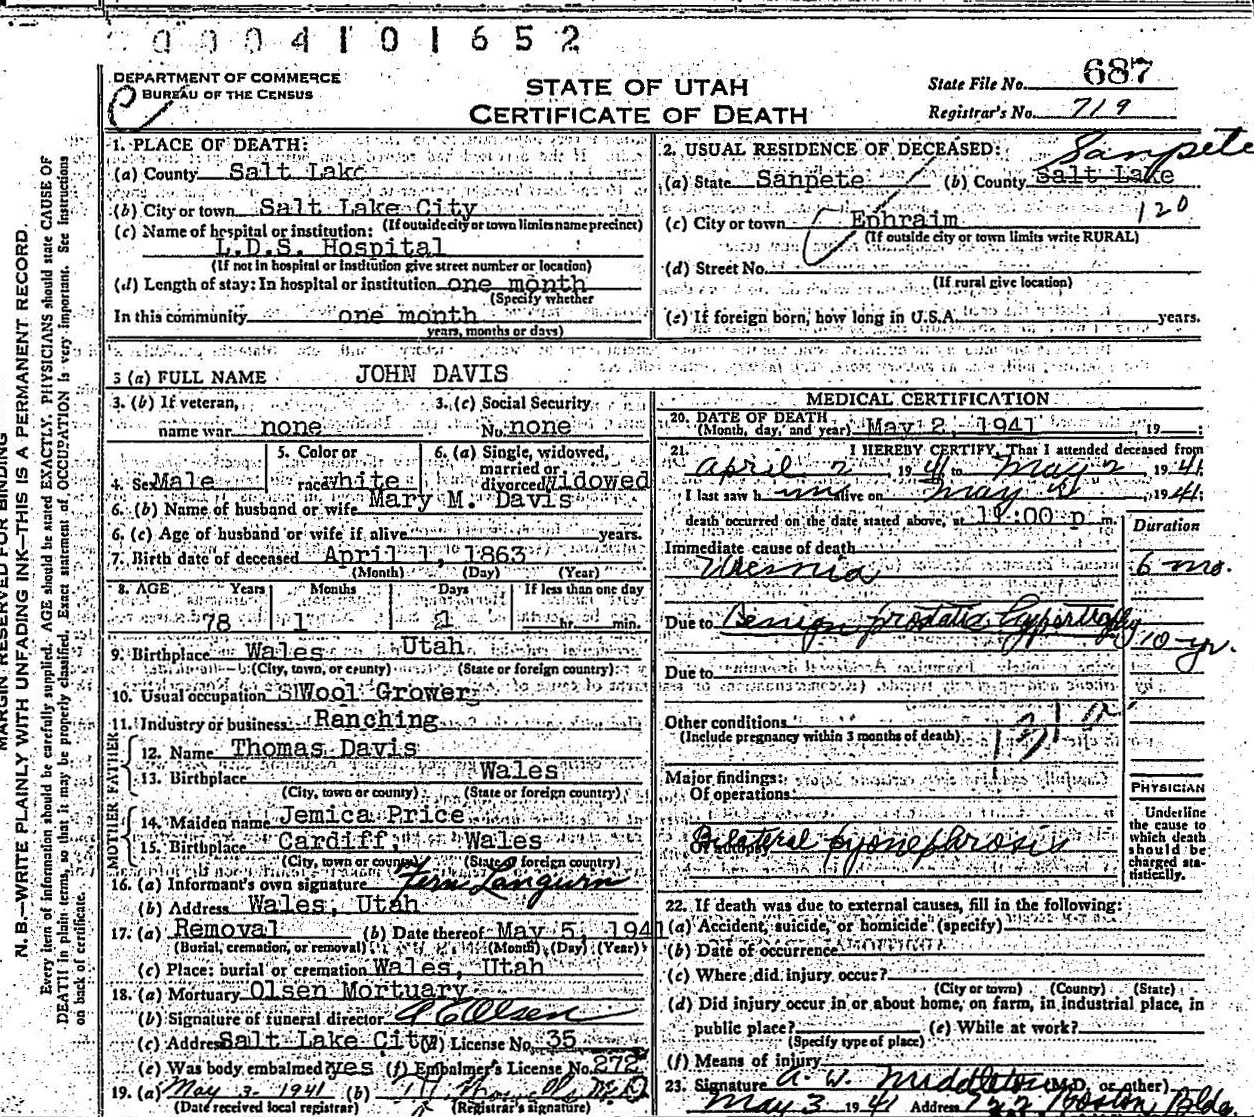 0004101652
DEPARTMENT OF COMMERCE
BUREAU OF THE CENSUS
STATE OF UTAH
CERTIFICATE OF DEATH
State File No. 687
Registrar's No. 719
MARGIN RESERVED FOR BINDING
N. B.—WRITE PLAINLY WITH UNFADING INK—THIS IS A PERMANENT RECORD.
Every item of information should be carefully supplied. AGE should be stated EXACTLY. PHYSICIANS should state CAUSE OF
DEATH in plain terms, so that it may be properly classified. Exact statement of OCCUPATION is very important. See instructions
on back of certificate.
1. PLACE OF DEATH:
(a) County Salt Lake
(b) City or town Salt Lake City
(If outside city or town limits name precinct)
(c) Name of hospital or institution:
L.D.S. Hospital
(If not in hospital or institution give street number or location)
(d) Length of stay: In hospital or institution one month
(Specify whether
In this community one month
years, months or days)
2. USUAL RESIDENCE OF DECEASED:
Sanpete
(a) State Sanpete (b) County Salt Lake
120
(c) City or town Ephraim
(If outside city or town limits write RURAL)
(d) Street No.
(If rural give location)
(e) If foreign born, how long in U.S.A. years.
3 (a) FULL NAME JOHN DAVIS
3. (b) If veteran, 3. (c) Social Security
name war none No. none
4. Sex Male 5. Color or race white 6. (a) Single, widowed, married or divorced widowed
6. (b) Name of husband or wife Mary M. Davis
6. (c) Age of husband or wife if alive years.
7. Birth date of deceased April 1, 1863
(Month) (Day) (Year)
8. AGE Years Months Days If less than one day
78 1 1 hr. min.
9. Birthplace Wales Utah
(City, town, or county) (State or foreign country)
10. Usual occupation Wool Grower
11. Industry or business Ranching
FATHER
12. Name Thomas Davis
13. Birthplace Wales
(City, town or county) (State or foreign country)
MOTHER
14. Maiden name Jemica Price
15. Birthplace Cardiff, Wales
(City, town or county) (State or foreign country)
16. (a) Informant's own signature Fern
(b) Address Wales, Utah
17. (a) Removal (b) Date thereof May 5, 1941
(Burial, cremation, or removal) (Month) (Day) (Year)
(c) Place: burial or cremation Wales, Utah
18. (a) Mortuary Olsen Mortuary
(b) Signature of funeral director Olsen
(c) Address Salt Lake City License No. 35
(e) Was body embalmed? yes (f) Embalmer's License No. 272
19. (a) May 3 1941 (b)
(Date received local registrar) (Registrar's signature)
MEDICAL CERTIFICATION
20. DATE OF DEATH
(Month, day, and year) May 2, 1941, 19
21. I HEREBY CERTIFY, That I attended deceased from
April 2 1941 to May 2 1941
I last saw him alive on May 1941
death occurred on the date stated above, at 11:00 p m.
Duration
Immediate cause of death
Uremia 6 mo.
Due to Benign prostatic hypertrophy 10 yr.
Due to
Other conditions
(Include pregnancy within 3 months of death)
Major findings:
Of operations
Bilateral pyonephrosis
Of autopsy
PHYSICIAN
Underline
the cause to
which death
should be
charged sta-
tistically.
22. If death was due to external causes, fill in the following:
(a) Accident, suicide, or homicide (specify)
(b) Date of occurrence
(c) Where did injury occur?
(City or town) (County) (State)
(d) Did injury occur in or about home, on farm, in industrial place, in
public place? (e) While at work?
(Specify type of place)
(f) Means of injury
23. Signature A. W. Middleton (M.D. or other)
May 3 1941 Address 722 Boston Bldg